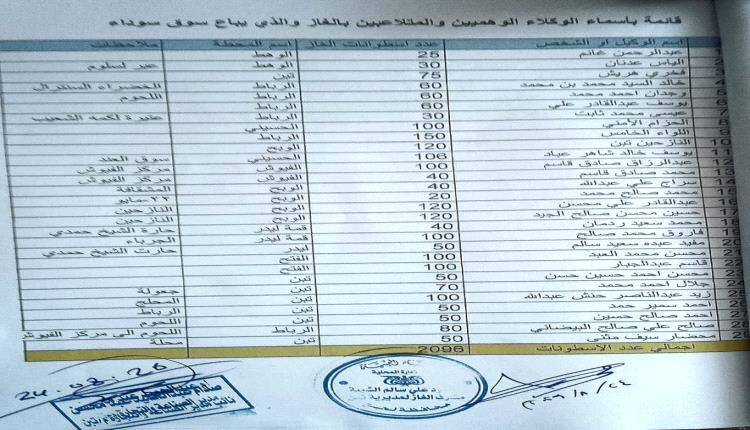 قائمة بأسماء الوكلاء الوهميين والمتلاعبين بالغاز والذي يباع سوق سوداء
اسم الوكيل او الشخص عدد اسطوانات الغاز اسم المحطة ملاحظات
1 عبدالرحمن غانم 25 الوهط
2 الياس عدنان 30 الوهط عبر لسلوم
3 فخري هريش 75 تبن
4 خالد السيد محمد بن محمد 60 الرباط الخضراء السنترال
5 وجدان احمد محمد 60 الرباط اللحوم
6 يوسف عبدالقادر علي 60 الرباط
7 عيسى محمد ثابت 30 الرباط عنبرة لكمه الشعيب
8 الحزام الأمني 100 الحسيني
9 اللواء الخامس 150 الرباط
10 النازحين تبن 120 الويح
11 يوسف خالد شاهر عباد 106 الحسيني سوق العند
12 عبدالرزاق صادق قاسم 100 الفيوش مركز الفيوش
13 محمد صادق قاسم 40 الفيوش مركز الفيوش
14 سراج علي عبدالله 40 الويح المشقافة
15 محمد صالح محمد 20 الويح ٢٢ مايو
16 عبدالقادر علي محسن 120 الويح النازحين
17 حسين محسن صالح الجيد 120 الويح النازحين
18 محمد سعيد ردمان 40 قمة ليدر حارة الشيخ حمدي
19 فاروق محمد صالح 100 قمة ليدر الجرباء
20 مفيد عبده سعيد سالم 50 ليدر حارت الشيخ حمدي
21 محسن محمد العبد 100 الفتح
22 قاسم عبدالجبار 100 الفتح
23 محسن احمد حسين حسن 50 تبن
24 جلال احمد محمد 70 تبن جعولة
25 زيد عبدالناصر حنش عبدالله 100 تبن المحلج
26 احمد سمير حمد 50 تبن الرباط
27 احمد صالح حسين 50 تبن اللحوم
28 صالح علي صالح البيضاني 80 الرباط اللحوم الى مركز الفيوش
29 محضار سيف مثنى 50 تبن محلة
اجمالي عدد الاسطونات 2096
24.08.26
علي سالم الشيبة
مشرف الغاز لمديرية تبن